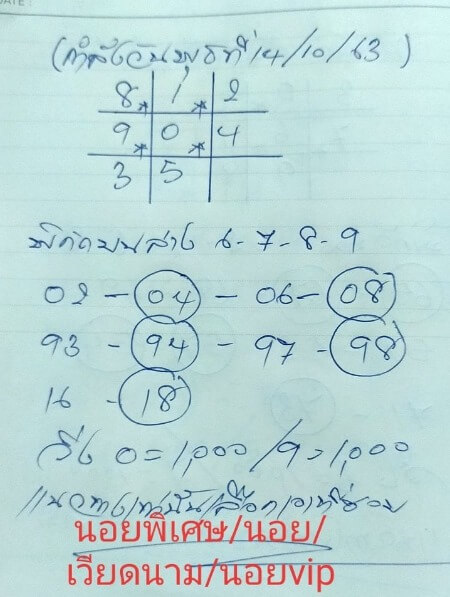 (กำลังวันพุธที่ 14/10/63)
8 1 2
9 0 4
3 5
พิกัดบนล่าง 6-7-8-9
02 - 04 - 06 - 08
93 - 94 - 97 - 98
16 - 18
วิ่ง 0=1,000/9=1,000
แนวทางเท่านั้น/เลือกเอาที่ชอบ
นอยพิเศษ/นอย/
เวียดนาม/นอยvip